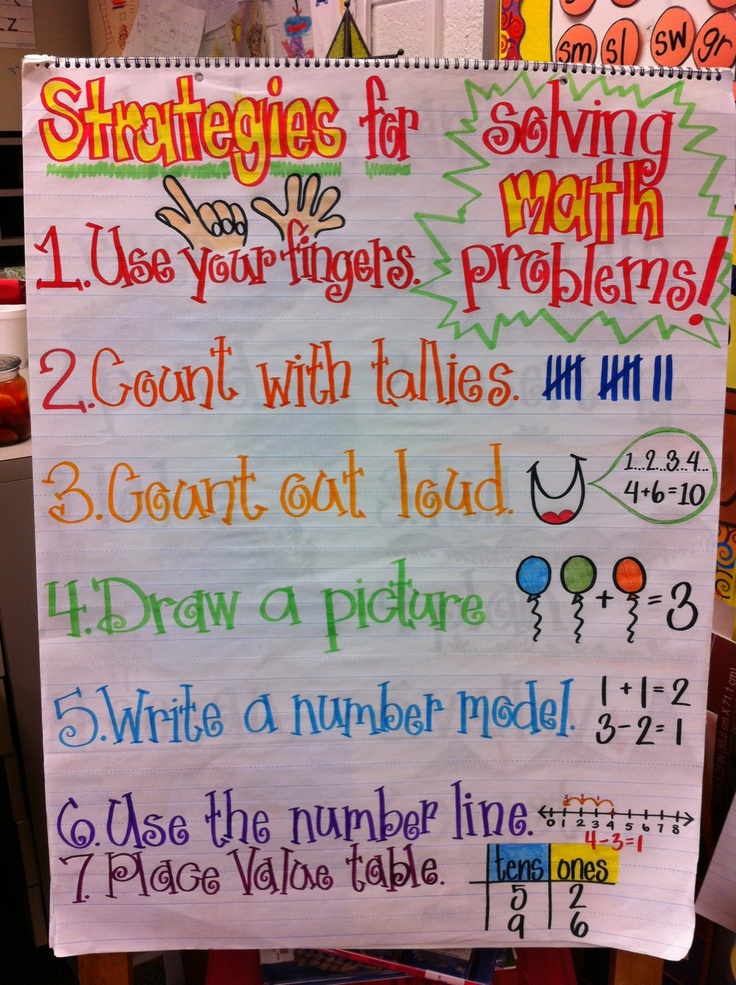 Strategies for
solving
math
problems!
1. Use your fingers.
2. Count with tallies.
3. Count out loud.
1...2..3..4...
4+6=10
4. Draw a picture
+ = 3
5. Write a number model.
1+1=2
3-2=1
6. Use the number line.
0 1 2 3 4 5 6 7 8
4-3=1
7. Place Value table.
tens ones
5 2
9 6
sm sl sw gr